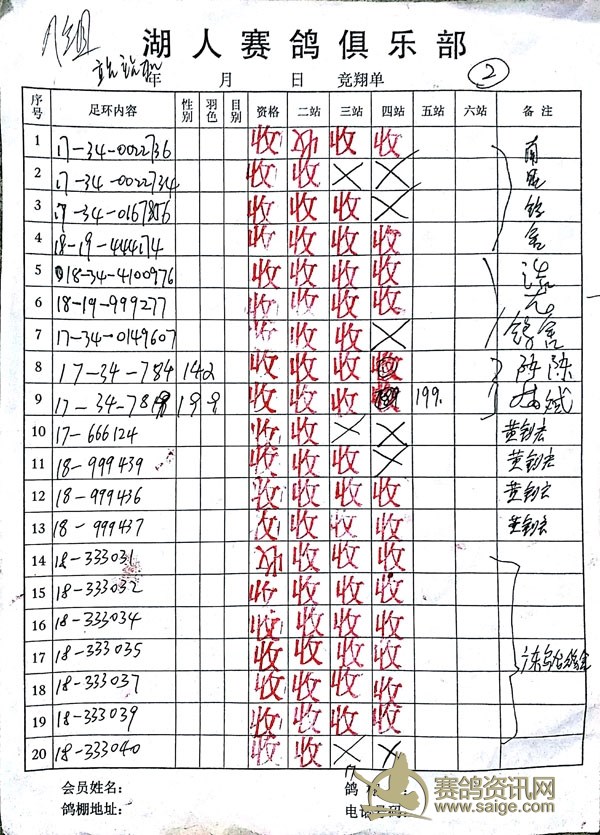 湖人赛鸽俱乐部
年 月 日 竞翔单 ②
序号 足环内容 性别 羽色 目别 资格 二站 三站 四站 五站 六站 备注
1 17-34-0022736 收 收 收 收
2 17-34-0022734 收 收 × ×
3 17-34-0167856 收 收 收 ×
4 18-19-444174 收 收 收 收 舍
5 018-34-4100976 收 收 收 收
6 18-19-999277 收 收 收 收
7 17-34-0149607 收 收 收 × 鸽舍
8 17-34-784 142 收 收 收 收
9 收 收 收 199.
10 17-666124 收 收 × ×
11 18-999439 收 收 收 ×
12 18-999436 收 收 收 收
13 18-999437 收 收 收 收
14 18-333031 收 收 收 收
15 18-333032 收 收 收 收
16 18-333034 收 收 收 收
17 18-333035 收 收 收 收
18 18-333037 收 收 收 收
19 18-333039 收 收 收 收
20 18-333040 收 收 × ×
会员姓名: 鸽
鸽棚地址: 电话号码:
赛鸽资讯网
www.saige.com